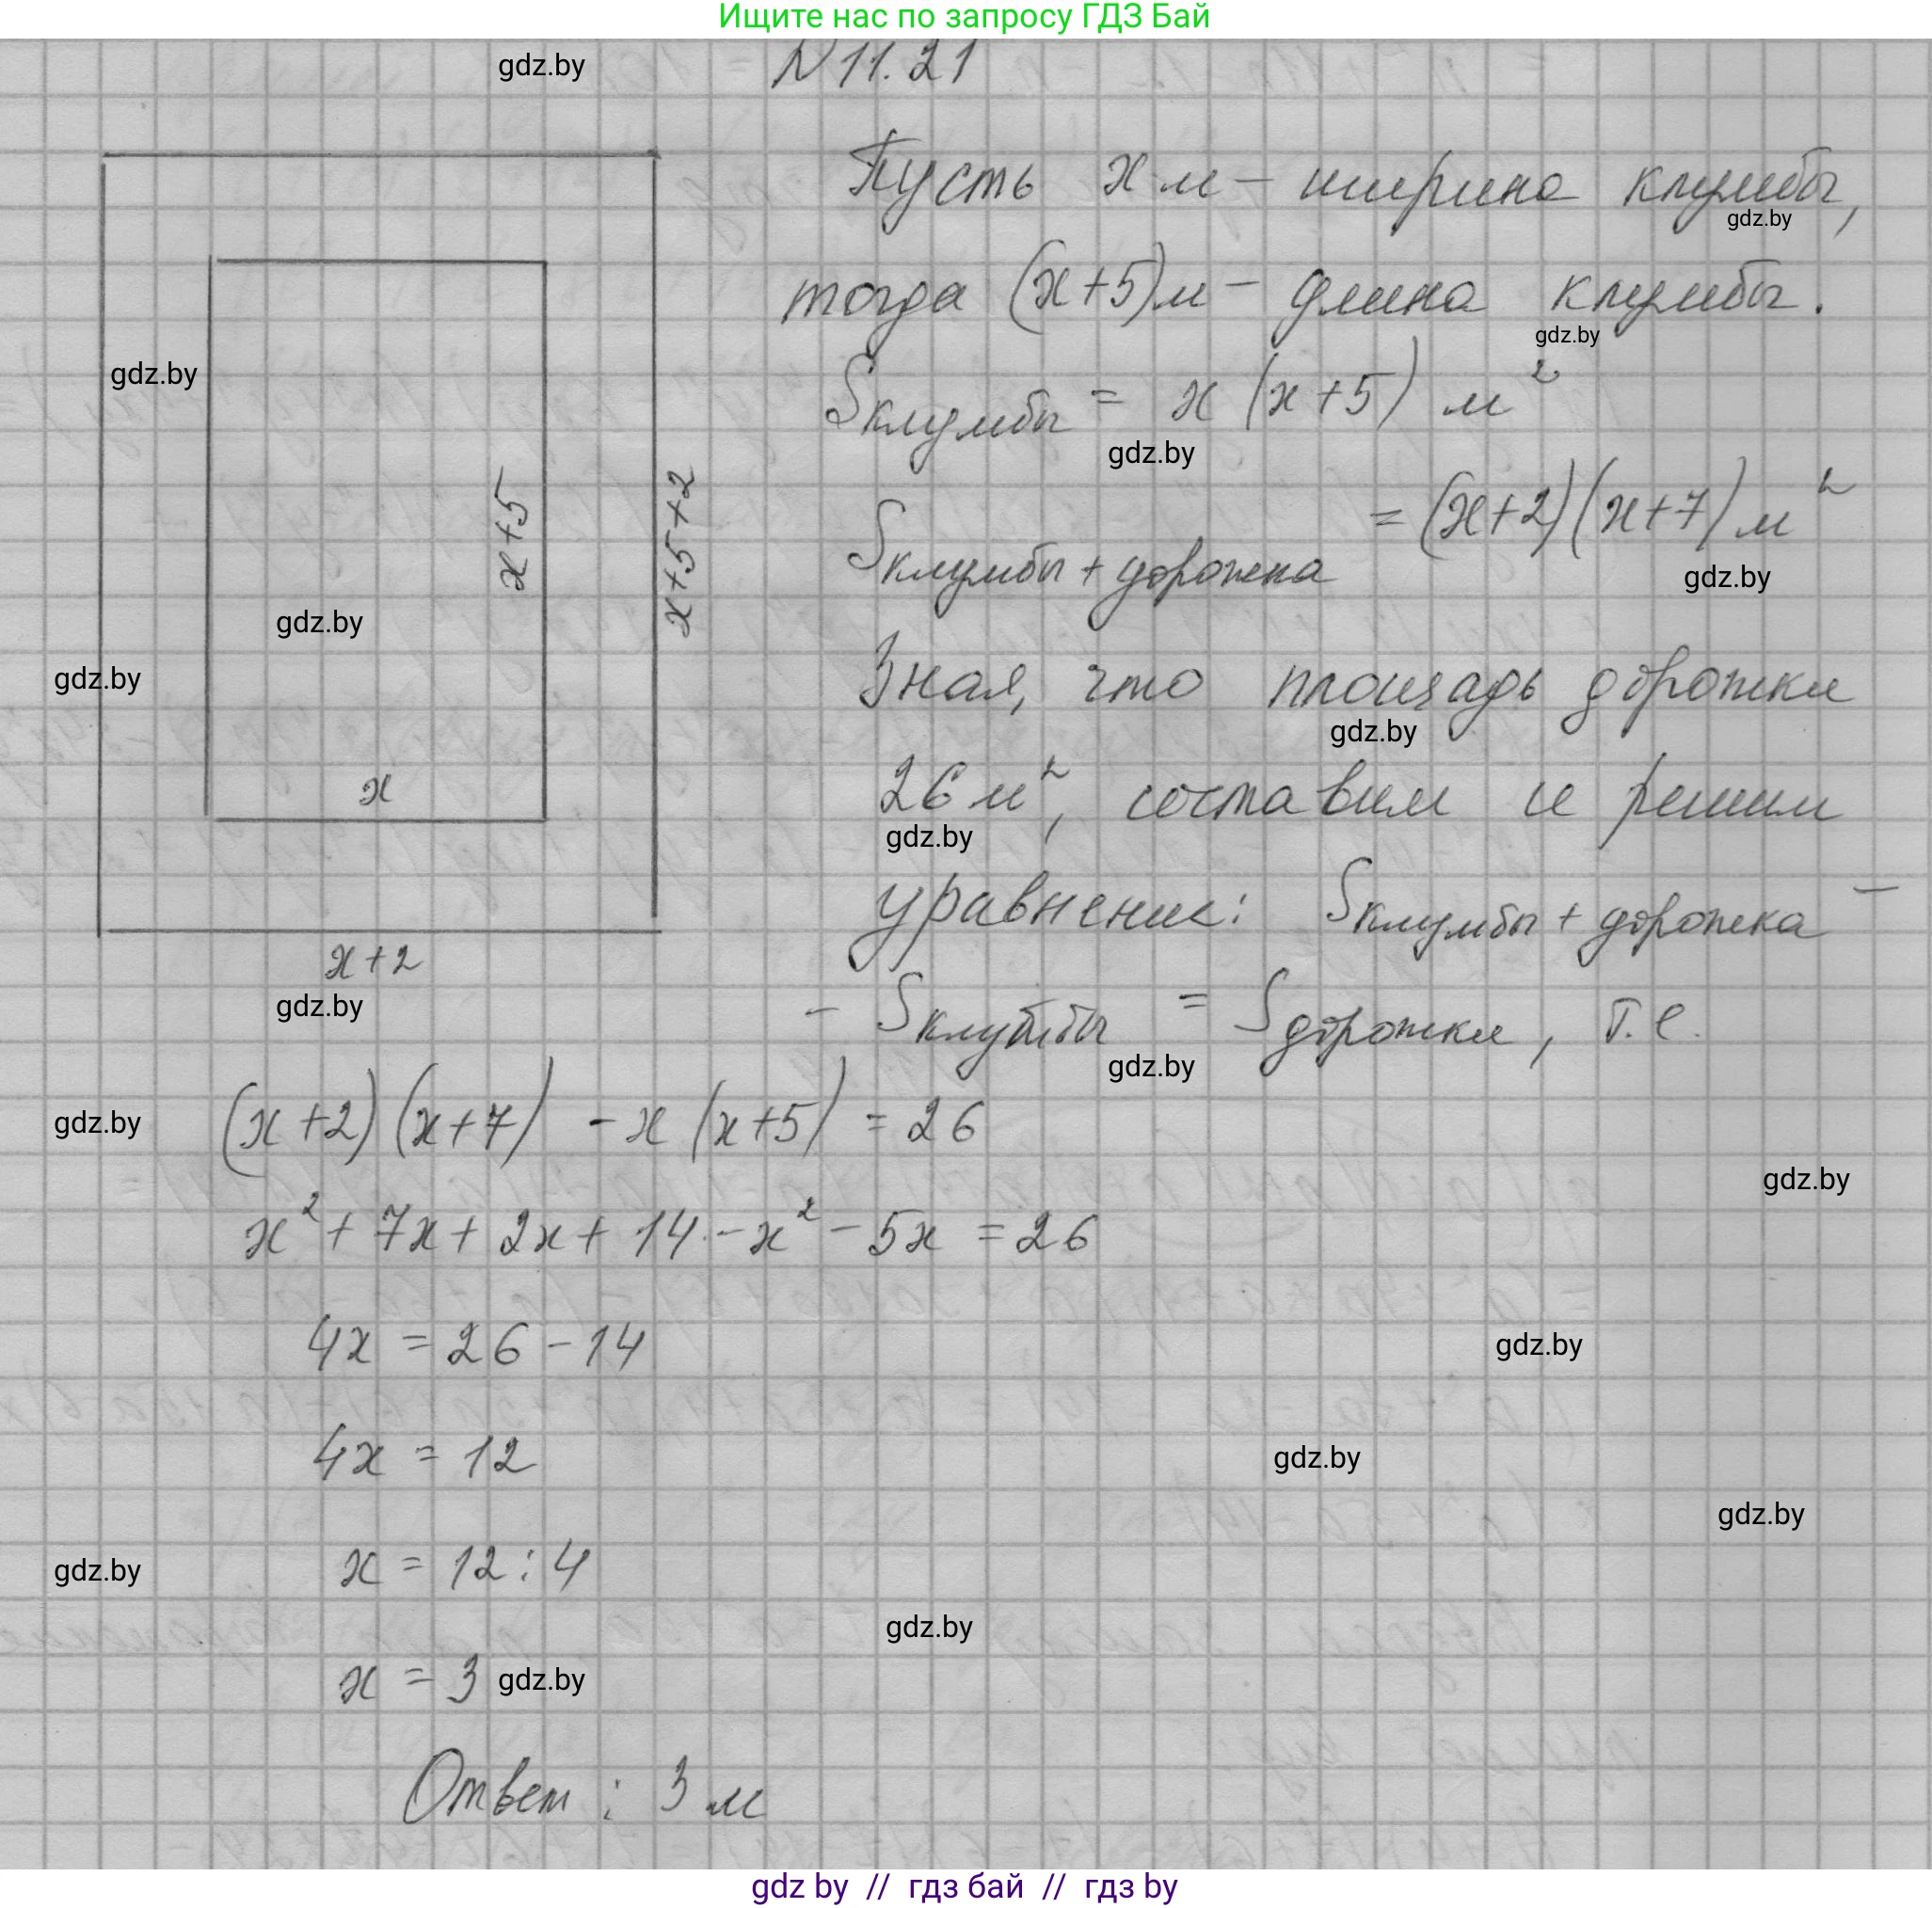 Ищите нас по запросу ГДЗ Бай
gdz.by
N 11.21
Пусть x м – ширина клумбы,
gdz.by
тогда (x+5) м – длина клумбы.
gdz.by
gdz.by
Sклумбы = x (x+5) м²
gdz.by
x+5
x+5+2
Sклумбы + дорожка = (x+2)(x+7) м²
gdz.by
gdz.by
gdz.by
Зная, что площадь дорожки
gdz.by
x
26 м², составим и решим
gdz.by
уравнение: Sклумбы + дорожка –
x+2
gdz.by
– Sклумбы = Sдорожки, т.е.
gdz.by
gdz.by
(x+2)(x+7) - x (x+5) = 26
gdz.by
x² + 7x + 2x + 14 - x² - 5x = 26
4x = 26 - 14
gdz.by
4x = 12
gdz.by
gdz.by
gdz.by
x = 12 : 4
gdz.by
x = 3
gdz.by
Ответ: 3 м
gdz by // гдз бай // гдз by